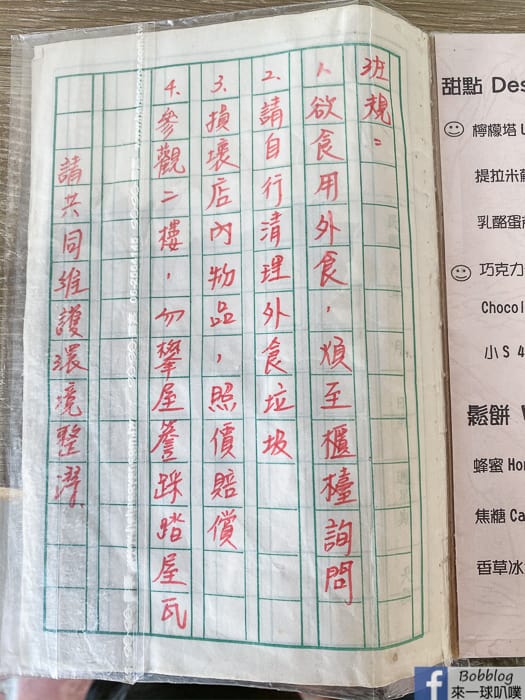 班規:
1. 欲食用外食，煩至櫃檯詢問
2. 請自行清理外食垃圾
3. 損壞店內物品，照價賠償
4. 參觀二樓，勿攀屋簷踩踏屋瓦
請共同維護環境整潔
甜點 Des
檸檬塔 L
提拉米
乳酪蛋
巧克力
Chocol
小 S 4
鬆餅
蜂蜜 Hon
焦糖 Ca
香草冰
Bobblog
來一球叭噗